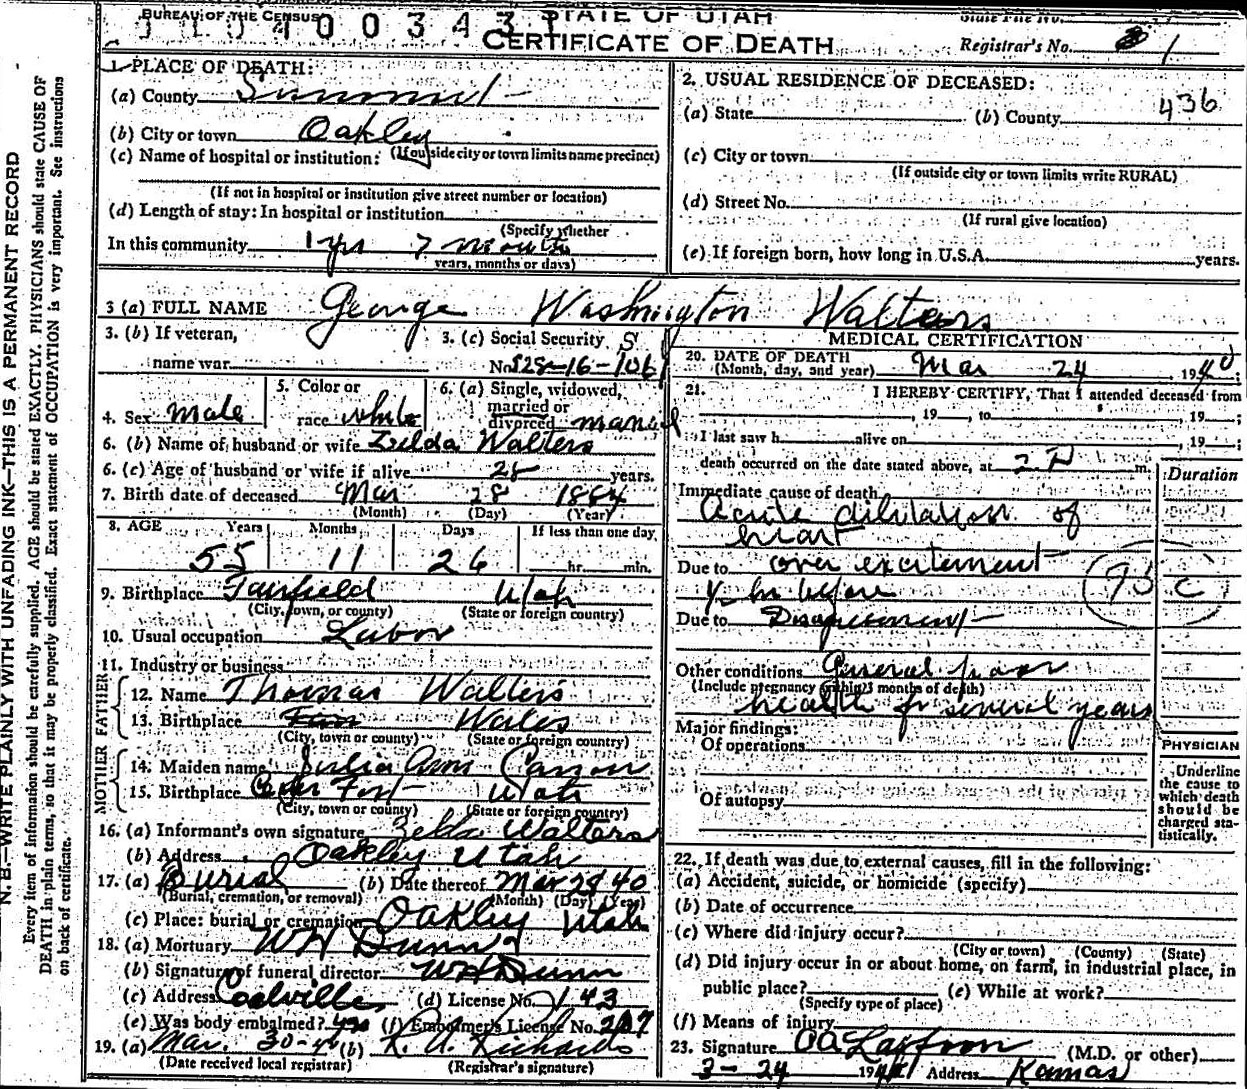 BUREAU OF THE CENSUS STATE OF UTAH State File No.
CERTIFICATE OF DEATH Registrar's No. 1
N. B.—WRITE PLAINLY WITH UNFADING INK—THIS IS A PERMANENT RECORD
Every item of information should be carefully supplied. AGE should be stated EXACTLY. PHYSICIANS should state CAUSE OF
DEATH in plain terms, so that it may be properly classified. Exact statement of OCCUPATION is very important. See instructions
on back of certificate.
1. PLACE OF DEATH:
(a) County Summit
(b) City or town Oakley
(If outside city or town limits name precinct)
(c) Name of hospital or institution:
(If not in hospital or institution give street number or location)
(d) Length of stay: In hospital or institution
(Specify whether
In this community 1 yrs 7 months
years, months or days)
2. USUAL RESIDENCE OF DECEASED:
436
(a) State (b) County
(c) City or town
(If outside city or town limits write RURAL)
(d) Street No.
(If rural give location)
(e) If foreign born, how long in U.S.A. years.
3 (a) FULL NAME George Washington Walters
3. (b) If veteran, 3. (c) Social Security
name war No. 528-16-106
4. Sex male 5. Color or race white 6. (a) Single, widowed, married or divorced
6. (b) Name of husband or wife Zelda Walters
6. (c) Age of husband or wife if alive 28 years.
7. Birth date of deceased Mar 28 1884
(Month) (Day) (Year)
8. AGE Years Months Days If less than one day
55 11 26 hr. min.
9. Birthplace Fairfield Utah
(City, town, or county) (State or foreign country)
10. Usual occupation Labor
11. Industry or business
FATHER
12. Name Thomas Walters
13. Birthplace Wales
(City, town or county) (State or foreign country)
MOTHER
14. Maiden name Julia Ann Carson
15. Birthplace Cedar Fort Utah
(City, town or county) (State or foreign country)
16. (a) Informant's own signature Zelda Walters
(b) Address Oakley Utah
17. (a) Burial (b) Date thereof Mar 28 40
(Burial, cremation, or removal) (Month) (Day) (Year)
(c) Place: burial or cremation Oakley Utah
18. (a) Mortuary W H Dunn
(b) Signature of funeral director W H Dunn
(c) Address Coalville (d) License No. 143
(e) Was body embalmed? yes (f) Embalmer's License No. 207
19. (a) Mar. 30-40 (b) Richards
(Date received local registrar) (Registrar's signature)
MEDICAL CERTIFICATION
20. DATE OF DEATH
(Month, day, and year) Mar 24, 1940;
21. I HEREBY CERTIFY, That I attended deceased from
, 19 , to , 19 ;
I last saw h alive on , 19 ;
death occurred on the date stated above, at 2 P m.
Duration
Immediate cause of death
Acute dilatation of
heart
Due to over excitement
hr before
Due to Disagreement
Other conditions General poor
(Include pregnancy within 3 months of death)
health for several years
Major findings:
Of operations
Of autopsy
PHYSICIAN
Underline
the cause to
which death
should be
charged sta-
tistically.
22. If death was due to external causes, fill in the following:
(a) Accident, suicide, or homicide (specify)
(b) Date of occurrence
(c) Where did injury occur?
(City or town) (County) (State)
(d) Did injury occur in or about home, on farm, in industrial place, in
public place? (e) While at work?
(Specify type of place)
(f) Means of injury
23. Signature (M.D. or other)
3-24 19 Address Kamas